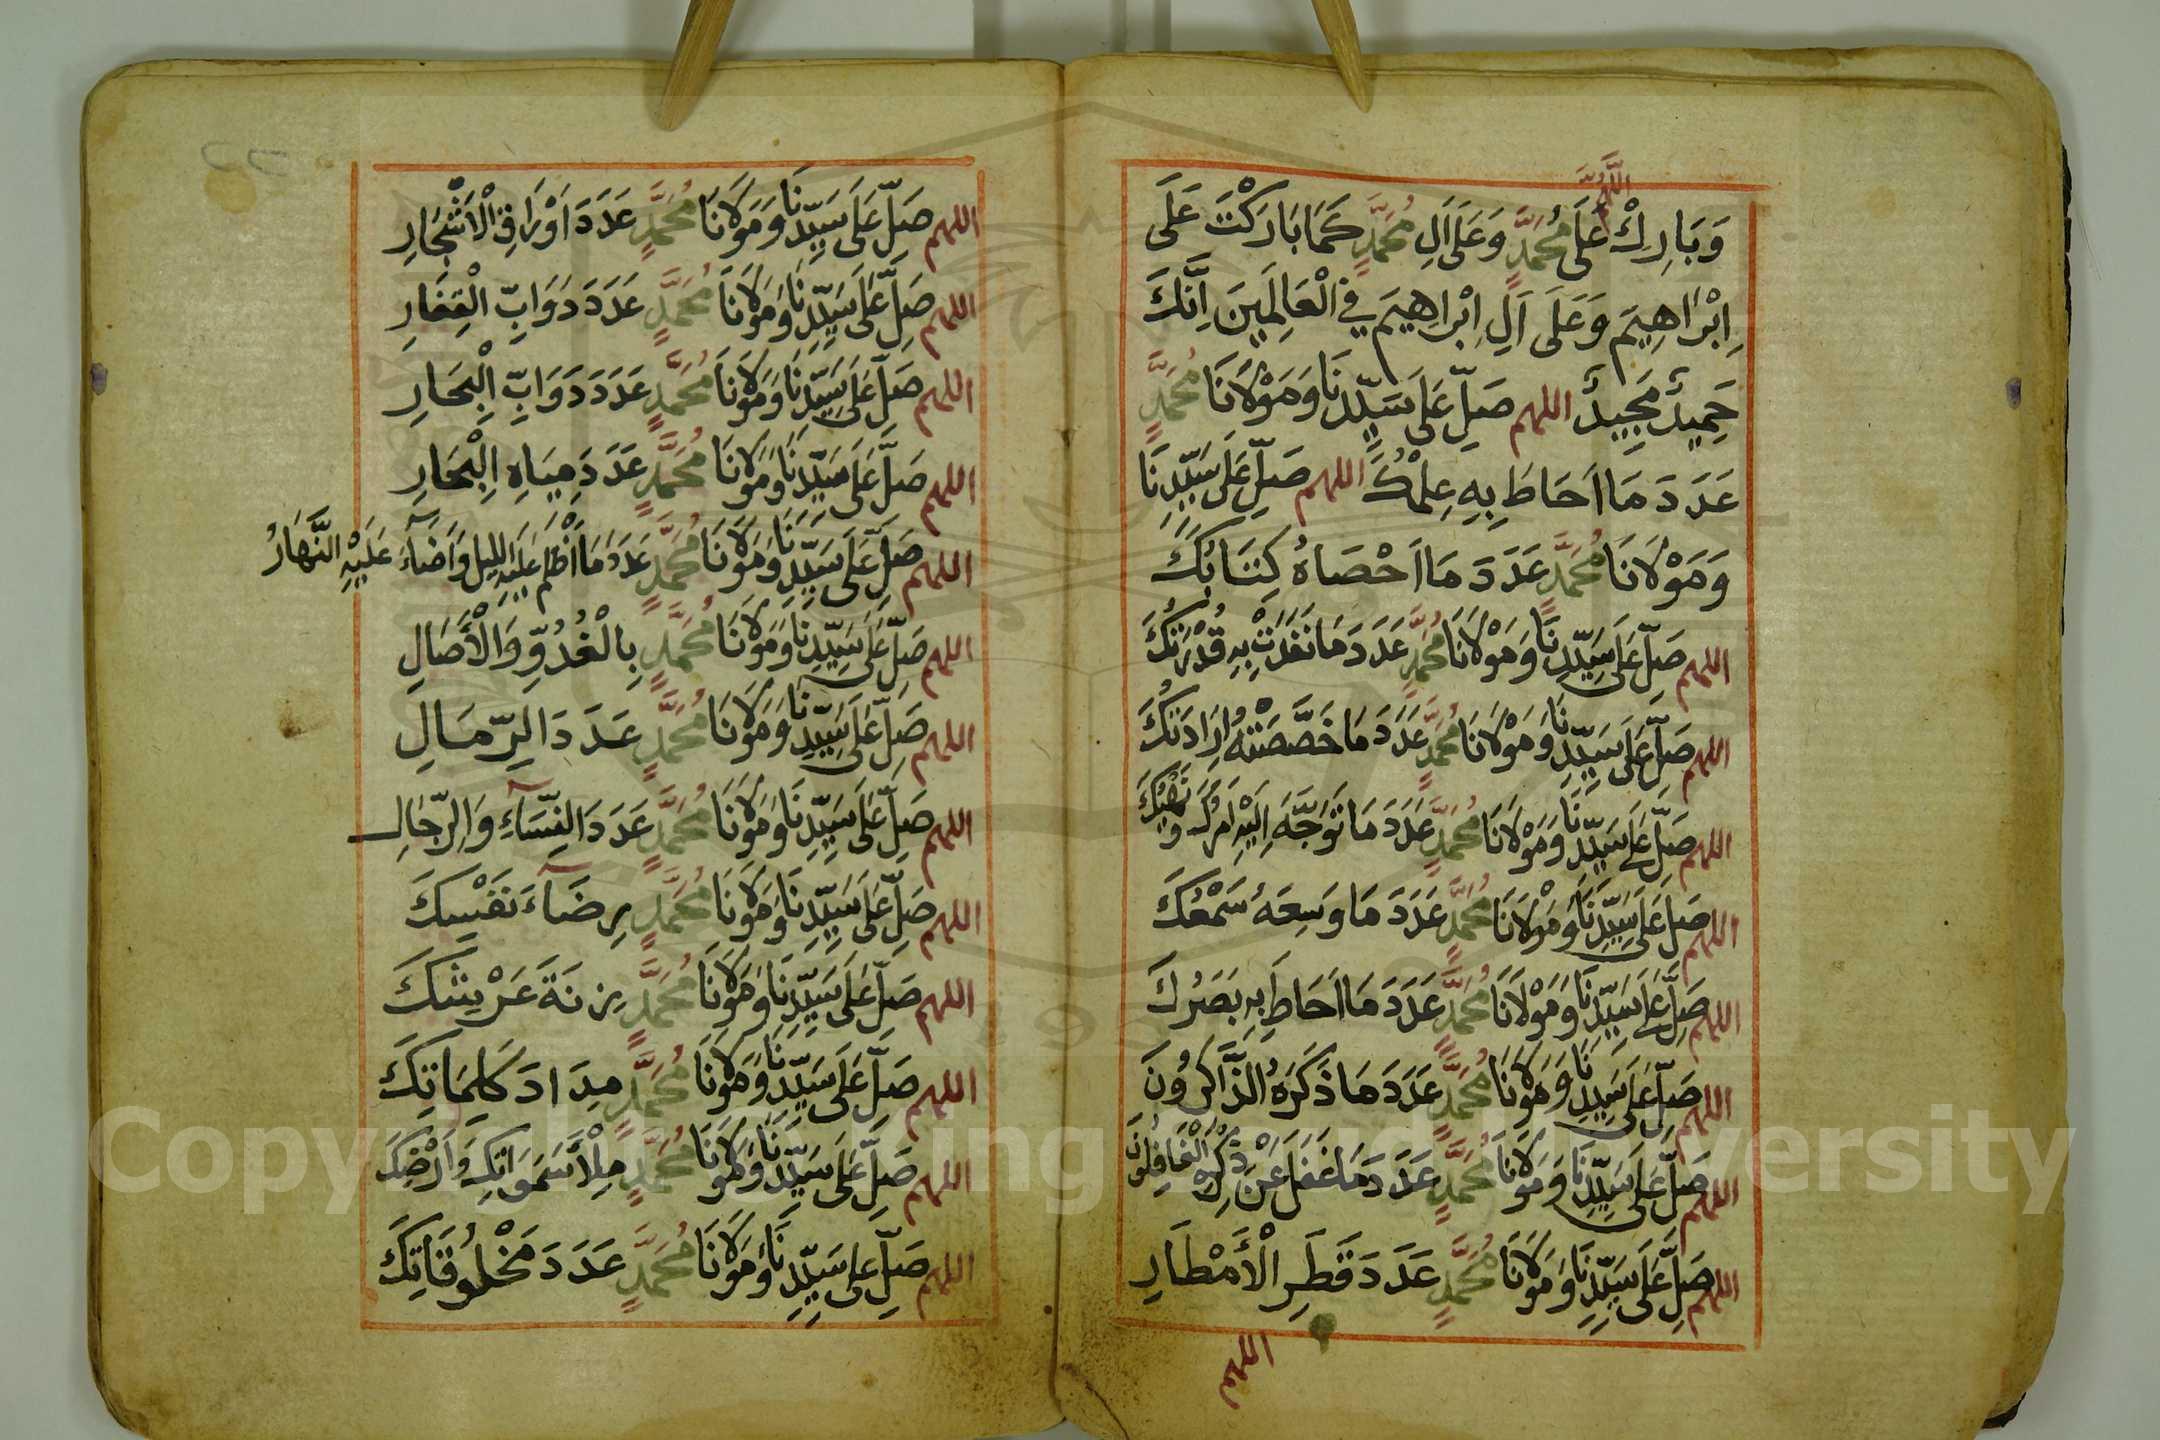 اللهم
وَبَارِكْ عَلَى مُحَمَّدٍ وَعَلَى اَلِ مُحَمَّدٍ كَمَا بَارَكْتَ عَلَى
اِبْرَاهِيمَ وَعَلَى اَلِ اِبْرَاهِيمَ فِي الْعَالَمِينَ اِنَّكَ
حَمِيدٌ مَجِيدٌ اللهم صَلِّ عَلَى سَيِّدِنَا وَمَوْلَانَا مُحَمَّدٍ
عَدَدَ مَا اَحَاطَ بِهِ عِلْمُكَ اللهم صَلِّ عَلَى سَيِّدِنَا
وَمَوْلَانَا مُحَمَّدٍ عَدَدَ مَا اَحْصَاهُ كِتَابُكَ
اللهم صَلِّ عَلَى سَيِّدِنَا وَمَوْلَانَا مُحَمَّدٍ عَدَدَ مَا نَفَذَتْ بِهِ قُدْرَتُكَ
اللهم صَلِّ عَلَى سَيِّدِنَا وَمَوْلَانَا مُحَمَّدٍ عَدَدَ مَا خَصَّصَتْهُ اِرَادَتُكَ
اللهم صَلِّ عَلَى سَيِّدِنَا وَمَوْلَانَا مُحَمَّدٍ عَدَدَ مَا تَوَجَّهَ اِلَيْهِ اَمْرُكَ وَنَهْيُكَ
اللهم صَلِّ عَلَى سَيِّدِنَا وَمَوْلَانَا مُحَمَّدٍ عَدَدَ مَا وَسِعَهُ سَمْعُكَ
اللهم صَلِّ عَلَى سَيِّدِنَا وَمَوْلَانَا مُحَمَّدٍ عَدَدَ مَا اَحَاطَ بِهِ بَصَرُكَ
اللهم صَلِّ عَلَى سَيِّدِنَا وَمَوْلَانَا مُحَمَّدٍ عَدَدَ مَا ذَكَرَهُ الذَّاكِرُونَ
اللهم صَلِّ عَلَى سَيِّدِنَا وَمَوْلَانَا مُحَمَّدٍ عَدَدَ مَا غَفَلَ عَنْ ذِكْرِهِ الْغَافِلُونَ
اللهم صَلِّ عَلَى سَيِّدِنَا وَمَوْلَانَا مُحَمَّدٍ عَدَدَ قَطَرِ الْأَمْطَارِ
اللهم
اللهم صَلِّ عَلَى سَيِّدِنَا وَمَوْلَانَا مُحَمَّدٍ عَدَدَ اَوْرَاقِ الْاَشْجَارِ
اللهم صَلِّ عَلَى سَيِّدِنَا وَمَوْلَانَا مُحَمَّدٍ عَدَدَ دَوَابِّ الْقِفَارِ
اللهم صَلِّ عَلَى سَيِّدِنَا وَمَوْلَانَا مُحَمَّدٍ عَدَدَ دَوَابِّ الْبِحَارِ
اللهم صَلِّ عَلَى سَيِّدِنَا وَمَوْلَانَا مُحَمَّدٍ عَدَدَ مِيَاهِ الْبِحَارِ
اللهم صَلِّ عَلَى سَيِّدِنَا وَمَوْلَانَا مُحَمَّدٍ عَدَدَ مَا اَظْلَمَ عَلَيْهِ الليل وَاَضَآءَ عَلَيْهِ النَّهَارُ
اللهم صَلِّ عَلَى سَيِّدِنَا وَمَوْلَانَا مُحَمَّدٍ بِالْغُدُوِّ وَالْأَصَالِ
اللهم صَلِّ عَلَى سَيِّدِنَا وَمَوْلَانَا مُحَمَّدٍ عَدَدَ الرِّمَالِ
اللهم صَلِّ عَلَى سَيِّدِنَا وَمَوْلَانَا مُحَمَّدٍ عَدَدَ النِّسَآءِ وَالرِّجَالِ
اللهم صَلِّ عَلَى سَيِّدِنَا وَمَوْلَانَا مُحَمَّدٍ رِضَآءَ نَفْسِكَ
اللهم صَلِّ عَلَى سَيِّدِنَا وَمَوْلَانَا مُحَمَّدٍ زِنَةَ عَرْشِكَ
اللهم صَلِّ عَلَى سَيِّدِنَا وَمَوْلَانَا مُحَمَّدٍ مِدَادَ كَلِمَاتِكَ
اللهم صَلِّ عَلَى سَيِّدِنَا وَمَوْلَانَا مُحَمَّدٍ مِلْأَ سَمَوَاتِكَ وَاَرْضِكَ
اللهم صَلِّ عَلَى سَيِّدِنَا وَمَوْلَانَا مُحَمَّدٍ عَدَدَ مَخْلُوقَاتِكَ